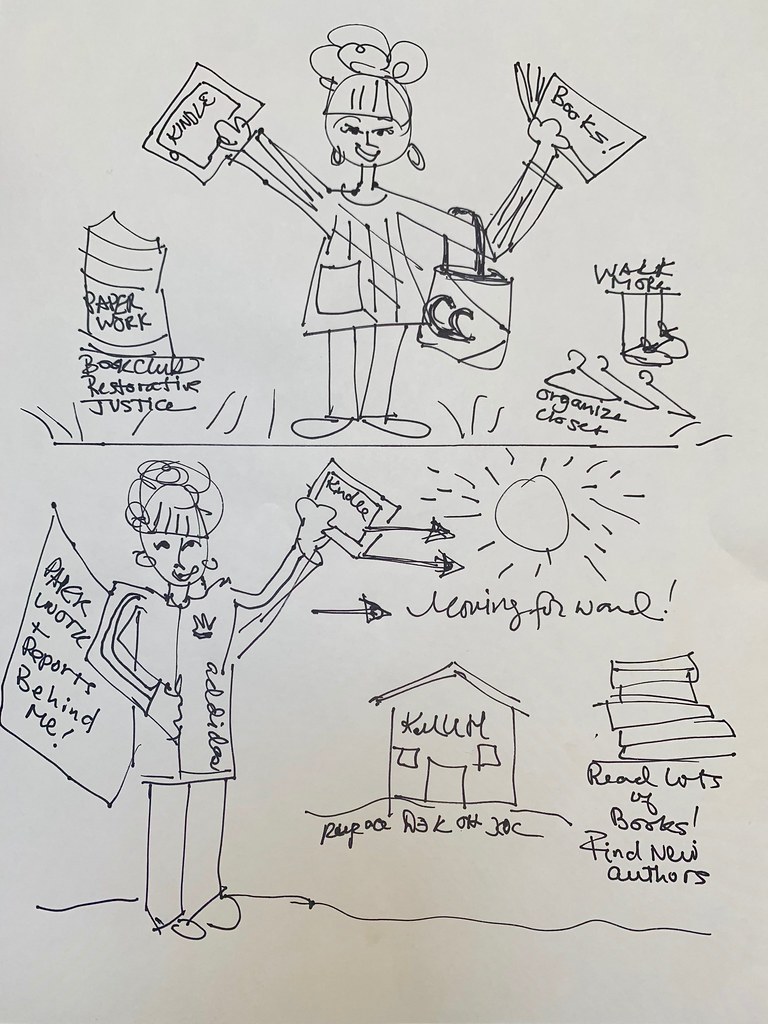 KINDLE
BOOKS!
PAPER
WORK
BookClub
Restorative
JUSTICE
WALK
MORE
organize
closet
CC
Kindle
Moving forward!
PAPER
WORK
+
Reports
Behind
Me!
addidas
Read lots
of
Books!
Find New
authors